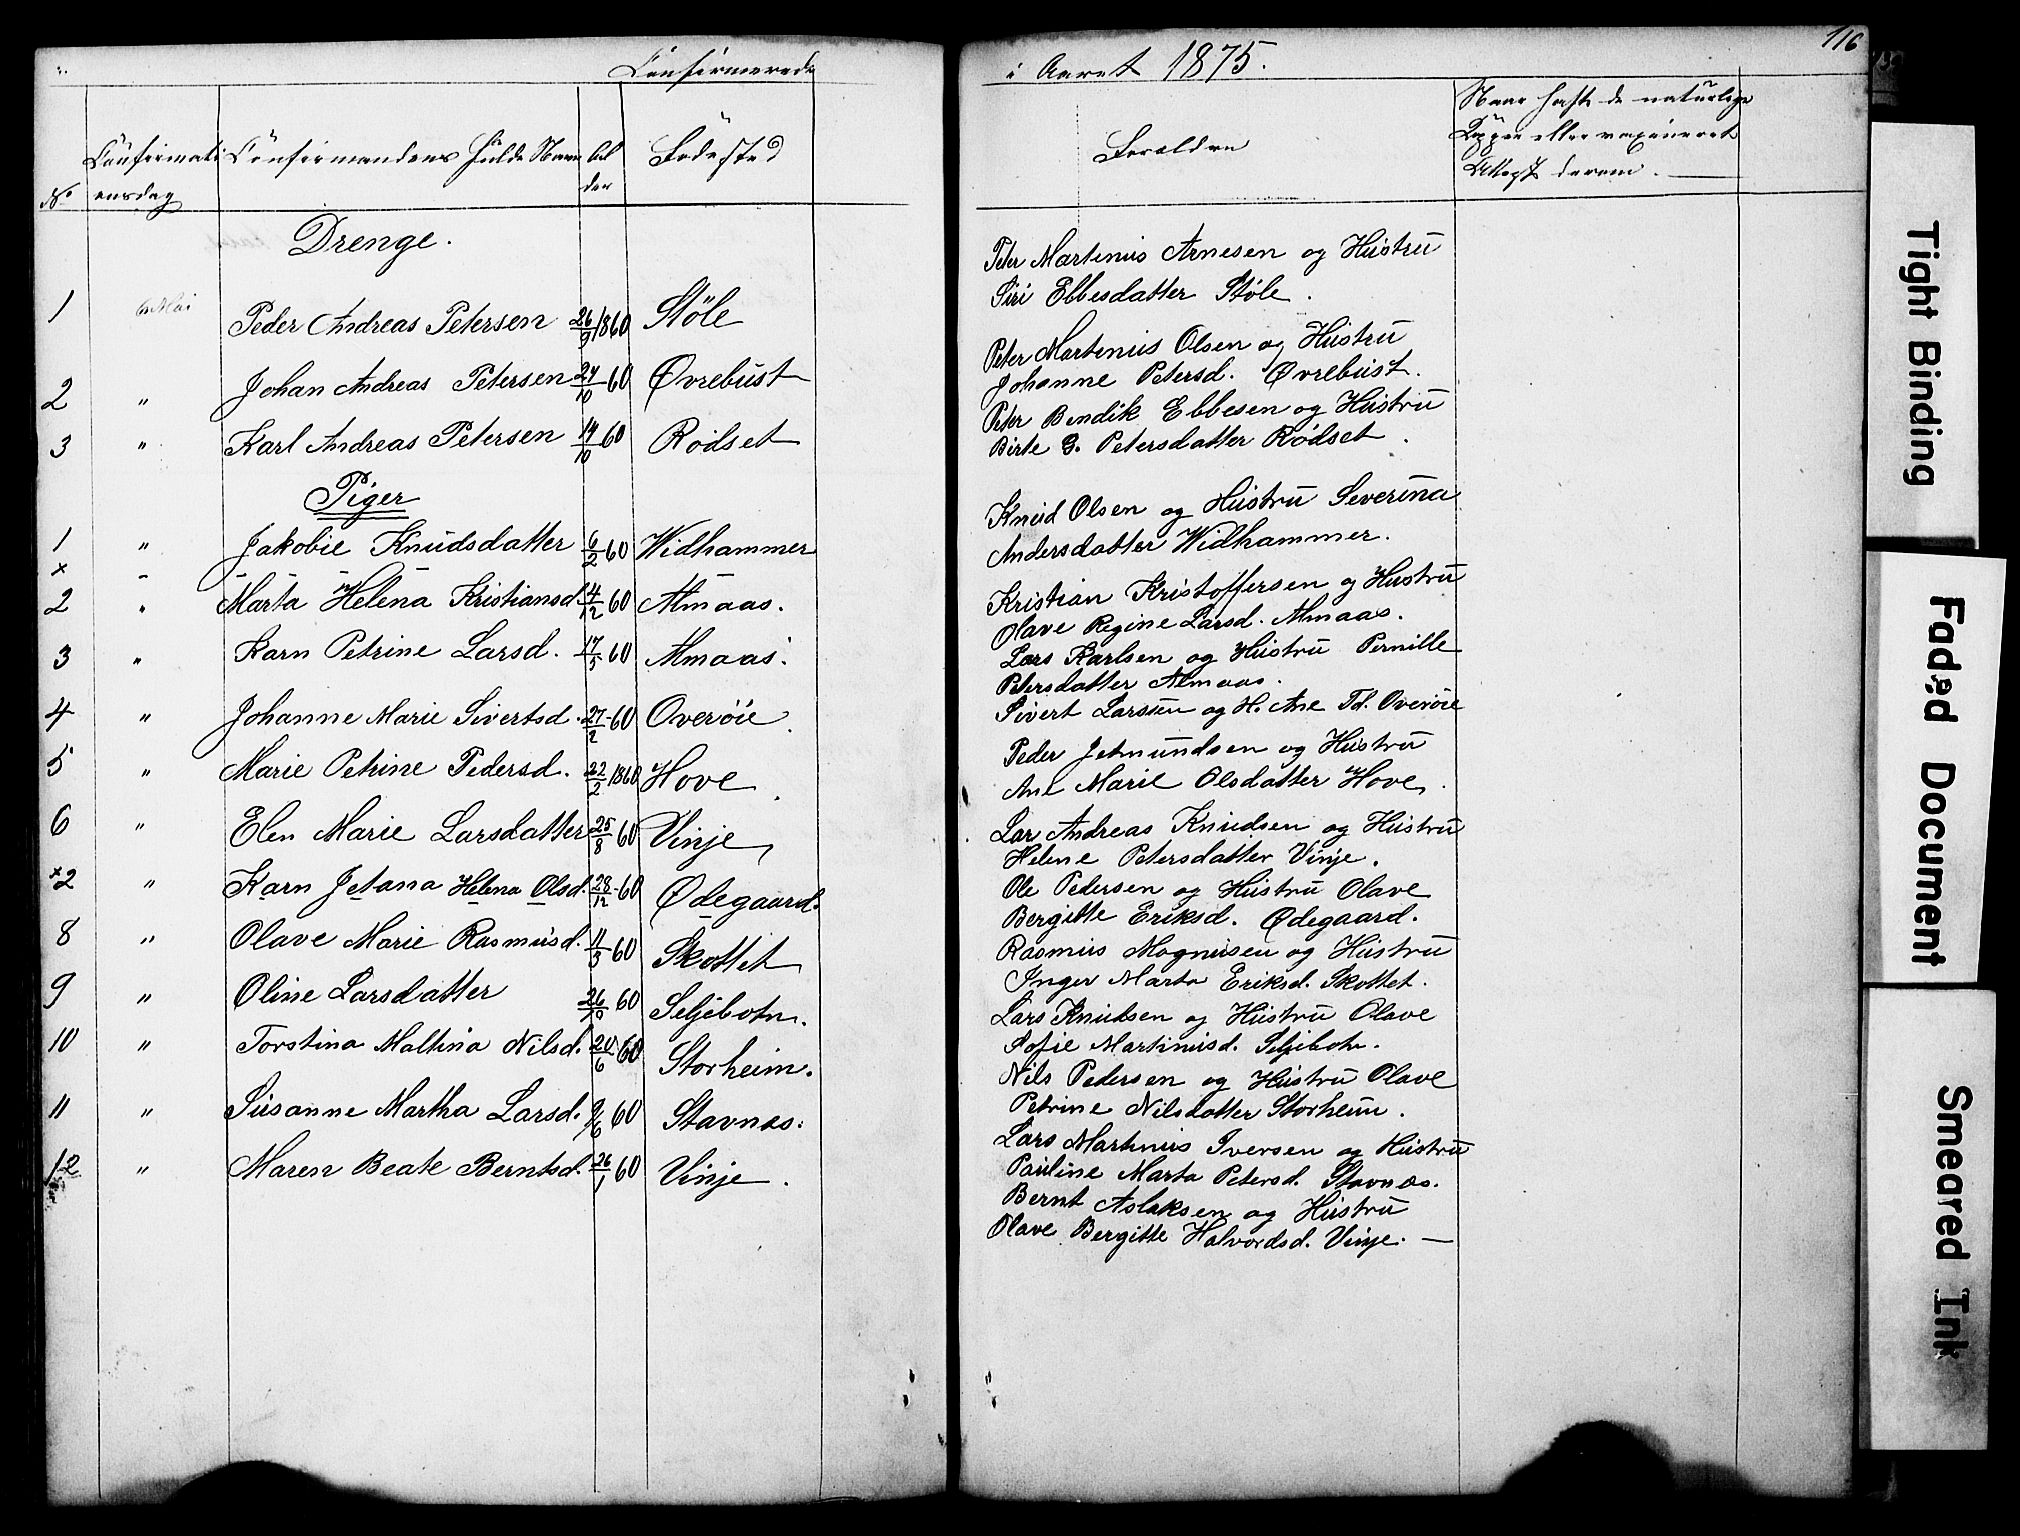 Confirmerede
i Aaret 1875.
116
No
Confirmationsdag
Confirmandens fulde Navn
Alder
Fødested
Forældre
Naar havte de naturlige
Kopper eller vaxineret
Attest derom.
Drenge.
1 Mai Peder Andreas Petersen 26/9 1860 Støle
Peter Martinus Arnesen og Hustru
Siri Ebbesdatter Støle.
2 " Johan Andreas Petersen 24/10 60 Øvrebust
Peter Martinus Olsen og Hustru
Johanne Petersd. Øvrebust.
3 " Karl Andreas Petersen 14/10 60 Rodset
Peter Bendik Ebbesen og Hustru
Birte G. Petersdatter Rødset.
Piger
1 " Jakobie Knudsdatter 6/2 60 Widhammer
Knud Olsen og Hustru Severina
Andersdatter Widhammer.
x
2 " Marta Helena Kristiansd. 4/12 60 Almaas.
Kristian Kristoffersen og Hustru
Olave Regine Larsd. Almaas.
3 " Karn Petrine Larsd. 17/5 60 Almaas.
Lars Karlsen og Hustru Pernille
Petersdatter Almaas.
4 " Johanne Marie Sivertsd. 27/2 60 Overøie.
Sivert Larssen og H. Ane Td. Overøie
5 " Marie Petrine Pedersd. 22/2 1860 Hove.
Peder Jetmundsen og Hustru
Ane Marie Olsdatter Hove.
6 " Elen Marie Larsdatter 25/8 60 Vinje
Lar Andreas Knudsen og Hustru
Helene Petersdatter Vinje.
x2 " Karn Jetana Helena Olsd. 28/12 60 Ødegaard.
Ole Pedersen og Hustru Olave
Bergitte Eriksd. Ødegaard.
8 " Olave Marie Rasmusd. 11/3 60 Skottet
Rasmus Magnusen og Hustru
Inger Marta Eriksd. Skottet.
9 " Oline Larsdatter 26/10 60 Seljebotn.
Lars Knudsen og Hustru Olave
Sofie Martinusd. Seljebotn.
10 " Torstina Maltina Nilsd. 20/6 60 Storheim.
Nils Pedersen og Hustru Olave
Petrine Nilsdatter Storheim.
11 " Susanne Martha Larsd. 9/6 60 Stavnes.
Lars Martinus Iversen og Hustru
Pauline Marta Petersd. Stavnes.
12 " Maren Beate Berntsd. 26/1 60 Vinje.
Bernt Aslaksen og Hustru
Olave Bergitte Halvordsd. Vinje. —
Tight Binding
Faded Document
Smeared Ink